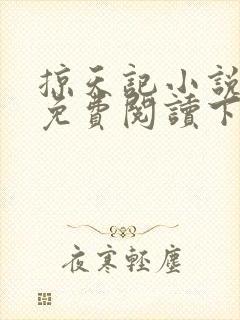 掠天記小說
免費閱讀下
夜寒輕塵